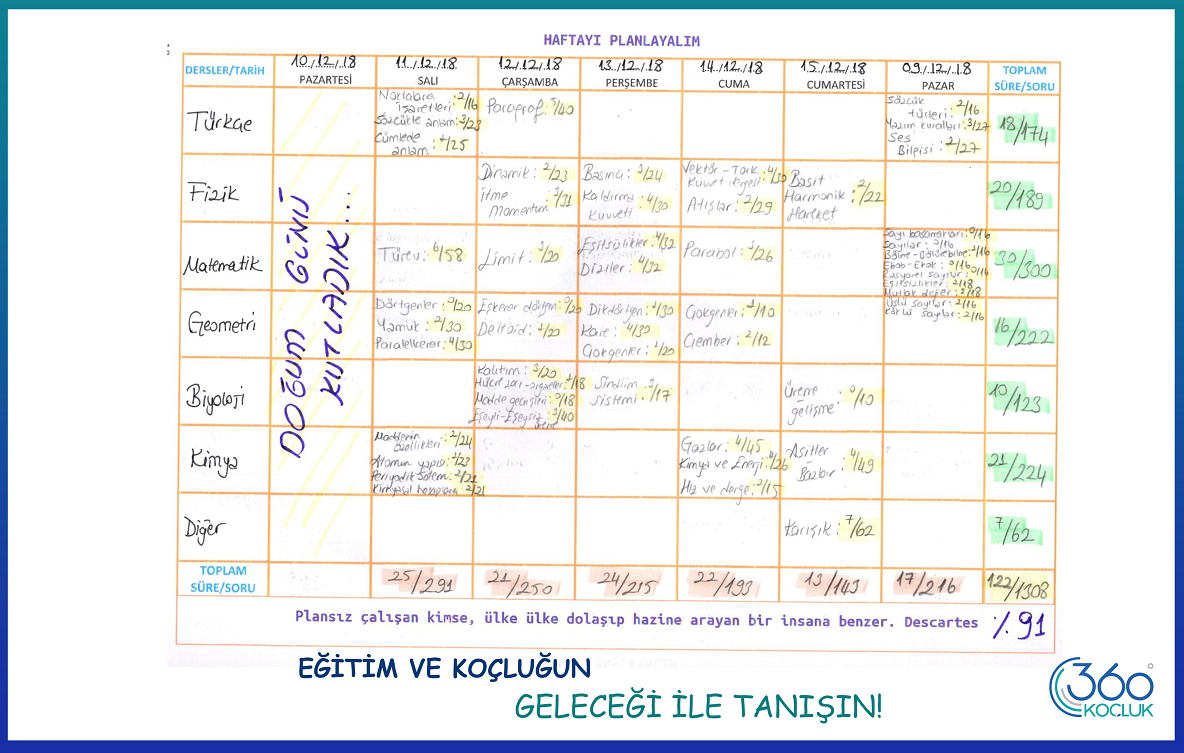 HAFTAYI PLANLAYALIM
DERSLER/TARİH
10./12./.18
PAZARTESİ
11./12./.18
SALI
12/12./.18
ÇARŞAMBA
13./12./.18
PERŞEMBE
14./12./.18
CUMA
15./12./.18
CUMARTESİ
09./12./.18
PAZAR
TOPLAM
SÜRE/SORU
DOĞUM GÜNÜ
KUTLADIK...
Türkçe
Noktalama
işaretleri: 2/16
Sözcükte anlam: 3/23
Cümlede
anlam: /25
Paragraf: 5/40
Sözcük
türleri: 2/16
Yazım kuralları: 3/27
Ses
Bilgisi: 2/27
18/174
Fizik
Dinamik: 2/23
İtme
Momentum: 3/31
Basınç: 3/24
Kaldırma
Kuvveti: 4/30
Vektör-Tork
Kuvvet dengesi: 4/30
Atışlar: 2/29
Basit
Harmonik: 2/22
Hareket
20/189
Matematik
Türev: 6/58
Limit: 3/20
Eşitsizlikler: 4/32
Diziler: 4/32
Parabol: 3/26
Sayı basamakları: /16
Sayılar: /16
Bölme-Bölünebilme: /16
Ebob-Ekok: /16
Rasyonel sayılar: /16
Eşitsizlikler: 2/18
Mutlak değer: /18
Üslü sayılar: 2/16
Köklü sayılar: 2/16
30/300
Geometri
Dörtgenler: /20
Yamuk: 2/30
Paralelkenar: 4/30
Eşkenar dörtgen: /20
Deltoid: 1/20
Dikdörtgen: /30
Kare: 4/30
Çokgenler: 1/20
Çokgenler: 1/10
Çember: 2/12
16/222
Biyoloji
Kalıtım: 3/20
Hücre zarı-organeller: /18
Madde geçişleri: /18
Eşeyli-Eşeysiz üreme: 3/40
Sindirim
Sistemi: 3/17
Üreme
gelişme: /10
10/123
Kimya
Maddenin
özellikleri: 2/24
Atomun yapısı: 2/23
Periyodik Sistem: 2/21
Kimyasal hesaplama 2/21
Gazlar: 4/45
Kimya ve Enerji: 4/26
Hız ve denge: 2/15
Asitler
Bazlar: 4/49
21/224
Diğer
Karışık: 7/62
7/62
TOPLAM
SÜRE/SORU
25/291
21/250
24/215
22/193
13/143
17/216
122/1308
Plansız çalışan kimse, ülke ülke dolaşıp hazine arayan bir insana benzer. Descartes
%91
EĞİTİM VE KOÇLUĞUN
GELECEĞİ İLE TANIŞIN!
360°
KOÇLUK